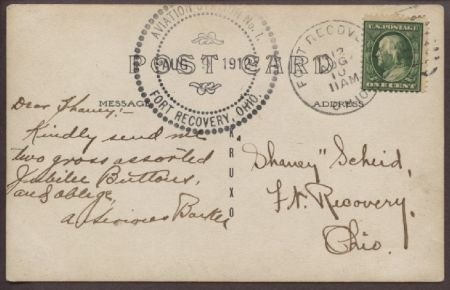 AVIATION STATION No. 1.
AUG. 1912
FORT RECOVERY, OHIO.
POST CARD
FORT RECOVERY
12
AUG
10
11AM
OHIO
U.S. POSTAGE
ONE CENT
MESSAGE
ADDRESS
Dear Shaney:-
Kindly send me
two gross assorted
Jubilee Buttons,
and oblige,
KRUXO
"Shaney" Scheid,
Ft. Recovery,
Ohio.